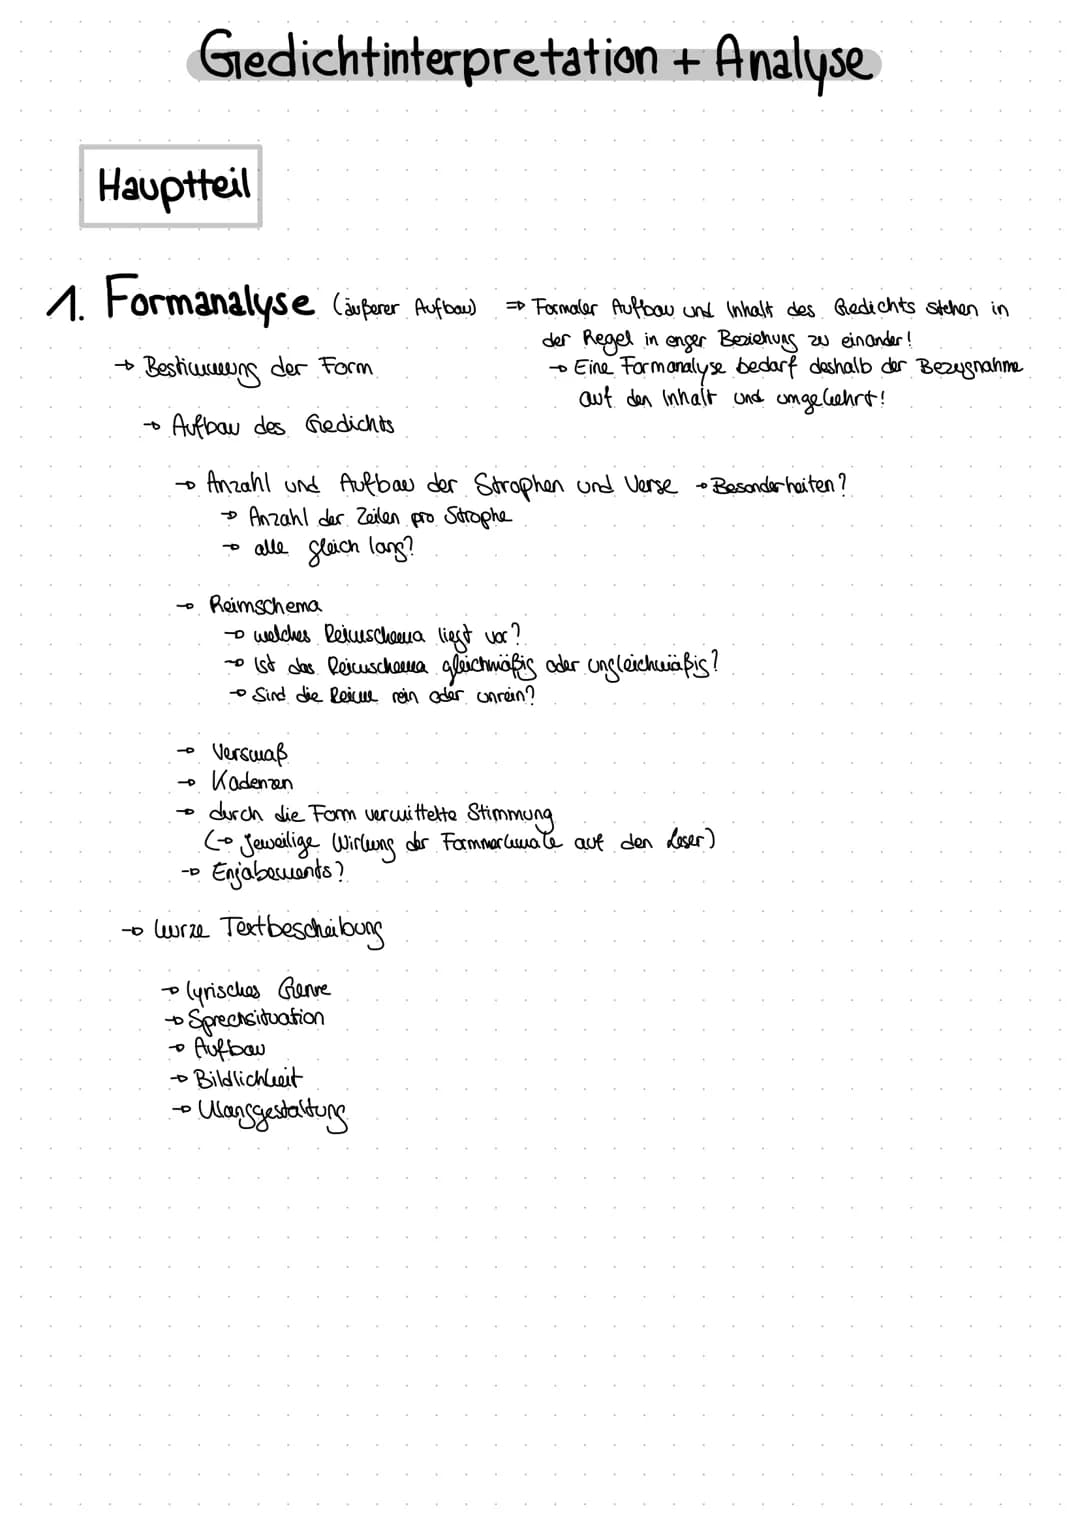 Gedichtinterpretation + Analyse
Hauptteil
1. Formanalyse (äußerer Aufbau) ⇒ Formaler Aufbau und Inhalt des Gedichts stehen in
der Regel in enger Beziehung zu einander!
→ Eine Formanalyse bedarf deshalb der Bezugnahme
auf den Inhalt und umgekehrt!
→ Bestimmung der Form
→ Aufbau des Gedichts
→ Anzahl und Aufbau der Strophen und Verse → Besonderheiten?
→ Anzahl der Zeilen pro Strophe
→ alle gleich lang?
→ Reimschema
→ welches Reimschema liegt vor?
→ Ist das Reimschema gleichmäßig oder ungleichmäßig?
→ Sind die Reime rein oder unrein?
→ Versmaß
→ Kadenzen
→ durch die Form vermittelte Stimmung
(→ Jeweilige Wirkung der Formmerkmale auf den Leser)
→ Enjabements?
→ kurze Textbescheibung
→ lyrisches Genre
→ Sprechsituation
→ Aufbau
→ Bildlichkeit
→ Klanggestaltung